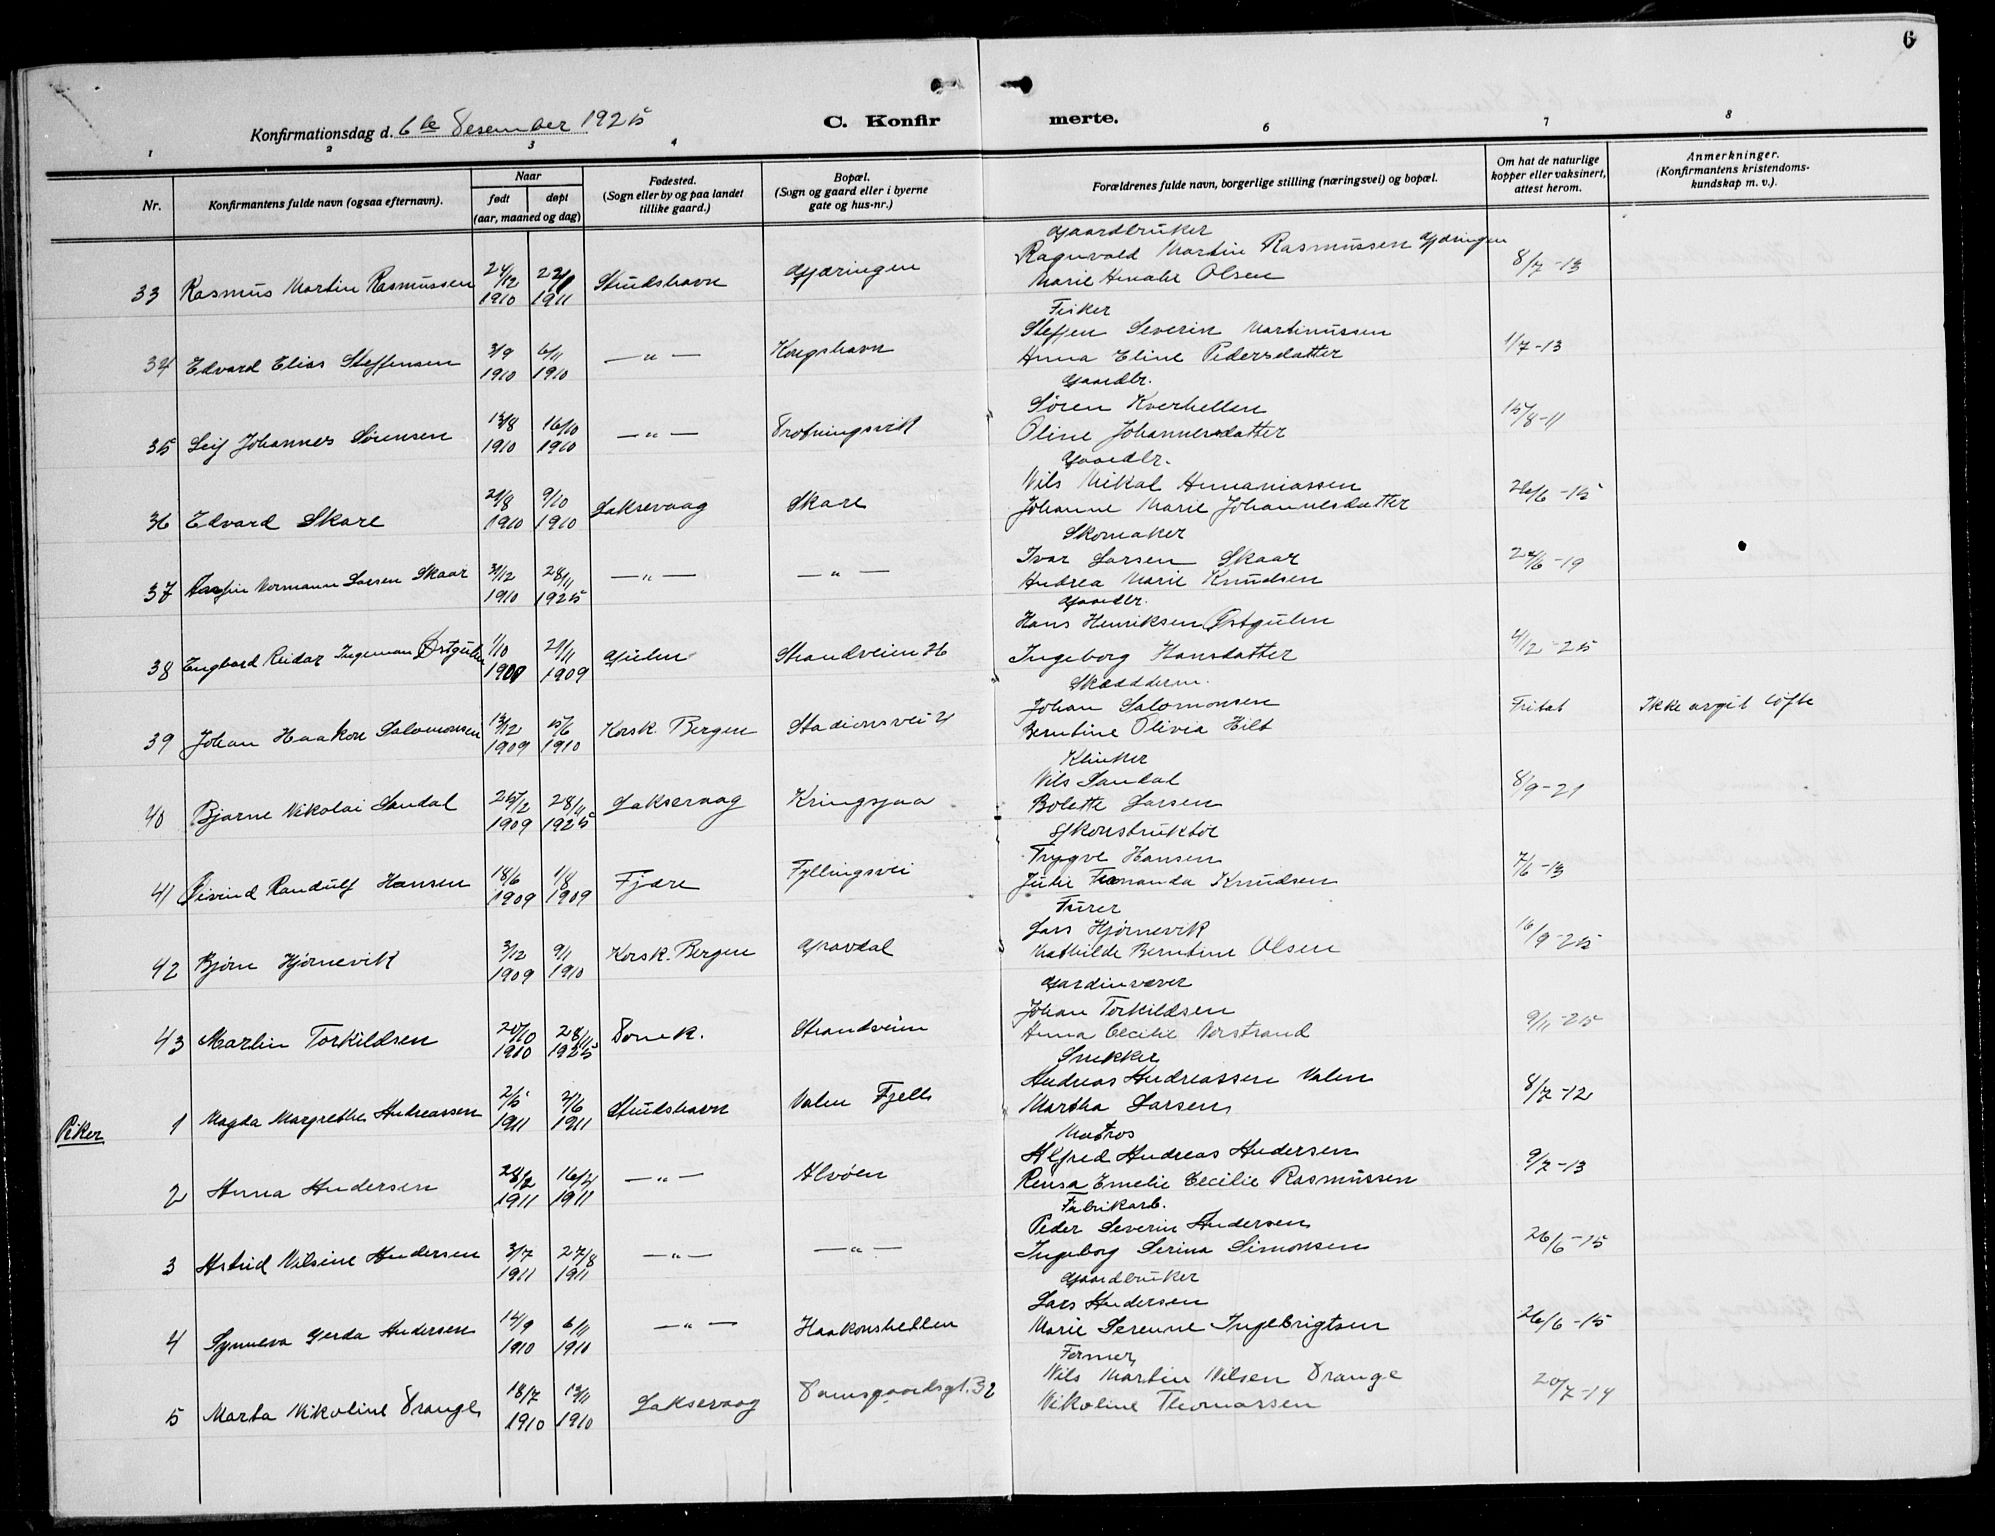 6
Konfirmationsdag d. 6te Desember 1925
C. Konfirmerte.
1 2 3 4 6 7 8
Nr. Konfirmantens fulde navn (ogsaa efternavn). Naar født døpt (aar, maaned og dag) Fødested. (Sogn eller by og paa landet tillike gaard.) Bopæl. (Sogn og gaard eller i byerne gate og hus-nr.) Forældrenes fulde navn, borgerlige stilling (næringsvei) og bopæl. Om hat de naturlige kopper eller vaksinert, attest herom. Anmerkninger. (Konfirmantens kristendomskundskap m. v.).
Gaardbruker
33 Rasmus Martin Rasmussen 24/12 1910 1911 Studshavn Gjæringen Ragnvald Martin Rasmussen Gjæringen 8/7-13
Marie Amalie Olsen
Fisker
34 Edvard Elias Steffensen 3/9 1910 6/11 1910 —"— Kongshavn Steffen Severin Martinussen 1/7-13
Anna Eline Pedersdatter
Gaardbr.
35 Leif Johannes Sørensen 13/8 1910 16/10 1910 —"— Drotningsvik Søren Kverhellen 15/8-11
Oline Johannesdatter
Gaardbr.
36 Edvard Skare 21/8 1910 9/10 1910 Laksevaag Skare Nils Mikal Annaniassen 26/6-15
Johanne Marie Johannesdatter
Skomaker
37 Normann Larsen Skaar 31/12 1910 28/11 1925 —"— —"— Ivar Larsen Skaar 24/6-19
Andrea Marie Knudsen
Gaardbr.
38 Engbard Reidar Ingeman Østgulen 1/10 1909 21/11 1909 Gulen Strandveien 26 Hans Henriksen Østgulen 4/12-25
Ingeborg Hansdatter
Skædderm.
39 Johan Haakon Salomonsen 13/12 1909 15/6 1910 Korsk. Bergen Stadionsvei 4 Johan Salomonsen Fritat Ikke avgit løfte
Berntine Olivia Hilt
Klinker
40 Bjarne Nikolai Sandal 25/2 1909 28/11 1925 Laksevaag Kringsjaa Nils Sandal 8/9-21
Bolette Larsen
Skonstruktør
41 Øivind Randulf Hansen 18/6 1909 1/8 1909 Fjære Fyllingsvei Trygve Hansen 7/6-13
Julie Fernanda Knudsen
Fører
42 Bjørn Hjørnevik 3/12 1909 9/1 1910 Korsk. Bergen Gravdal Lars Hjørnevik 16/9-25
Mathilde Berntine Olsen
Gardinvæver
43 Martin Torkildsen 20/10 1910 28/11 1925 Domk. Strandveien Johan Torkildsen 9/11-25
Anna Cecilie Norstrand
Snekker
Piker
1 Magda Margrethe Andreassen 2/5 1911 2/6 1911 Studshavn Valen Fjell Andreas Andreassen Valen 8/7-12
Martha Larsen
Matros
2 Anna Andersen 28/2 1911 16/4 1911 —"— Alvøen Alfred Andreas Andersen 9/7-13
Rensa Emelie Cecilie Rasmussen
Fabrikarb.
3 Astrid Nilsine Andersen 3/7 1911 27/8 1911 —"— —"— Peder Severin Andersen 26/6-15
Ingeborg Serina Simonsen
Gaardbruker
4 Synneva Gerda Andersen 14/9 1910 6/11 1910 —"— Haakonshellen Lars Andersen 26/6-15
Marie Serenne Ingebrigtsen
Former
5 Marta Nikoline Drange 18/7 1910 13/11 1910 Laksevaag Damsgaardsgt. 32 Nils Martin Nilsen Drange 20/7-14
Nikoline Thomassen